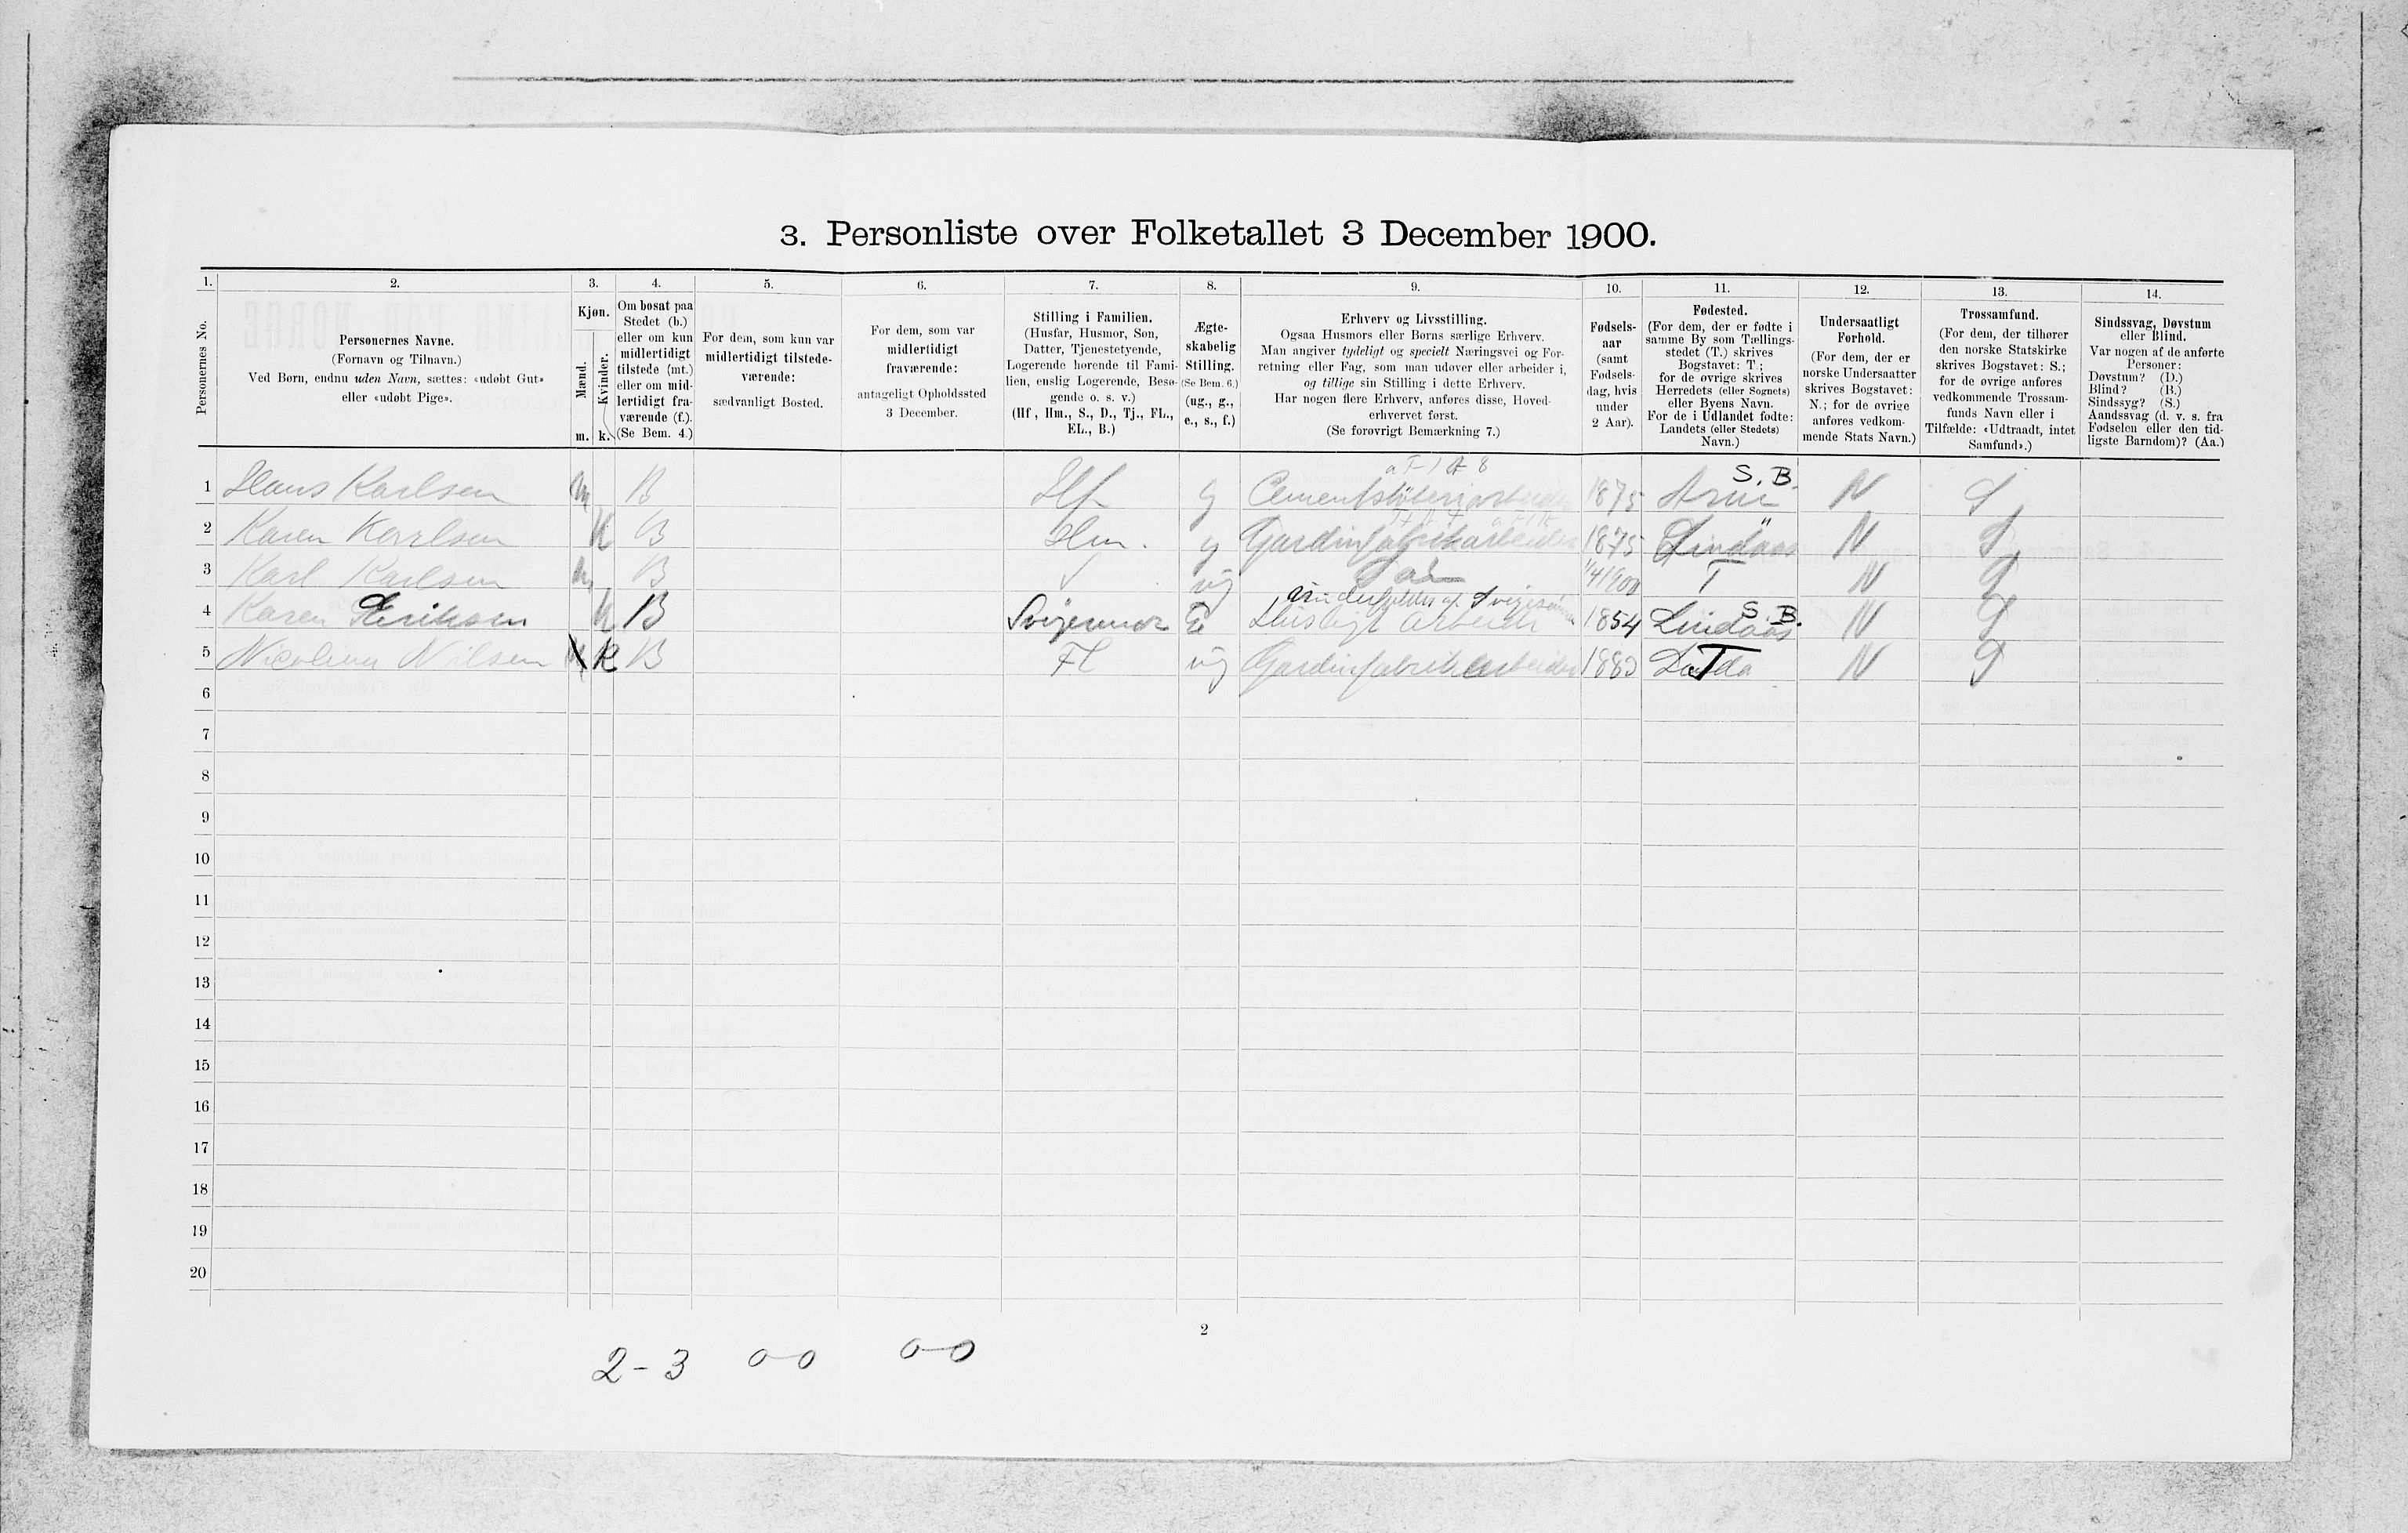 3. Personliste over Folketallet 3 December 1900.
1. 2. 3. 4. 5. 6. 7. 8. 9. 10. 11. 12. 13. 14.
Personernes No.
Personernes Navne.
(Fornavn og Tilnavn.)
Ved Børn, endnu uden Navn, sættes: «udøbt Gut»
eller «udøbt Pige».
Kjøn.
Mænd.
Kvinder.
m. k.
Om bosat paa
Stedet (b.)
eller om kun
midlertidigt
tilstede (mt.)
eller om mid-
lertidigt fra-
værende (f.).
(Se Bem. 4.)
For dem, som kun var
midlertidigt tilstede-
værende:
sædvanligt Bosted.
For dem, som var
midlertidigt
fraværende:
antageligt Opholdssted
3 December.
Stilling i Familien.
(Husfar, Husmor, Søn,
Datter, Tjenestetyende,
Logerende hørende til Fami-
lien, enslig Logerende, Besø-
gende o. s. v.)
(Hf., Hm., S., D., Tj., FL.,
EL., B.)
Ægte-
skabelig
Stilling.
(Se Bem. 6.)
(ug., g.,
e., s., f.)
Erhverv og Livsstilling.
Ogsaa Husmors eller Børns særlige Erhverv.
Man angiver tydeligt og specielt Næringsvei og For-
retning eller Fag, som man udøver eller arbeider i,
og tillige sin Stilling i dette Erhverv.
Har nogen flere Erhverv, anføres disse, Hoved-
erhvervet først.
(Se forøvrigt Bemærkning 7.)
Fødsels-
aar
(samt
Fødsels-
dag, hvis
under
2 Aar).
Fødested.
(For dem, der er fødte i
samme By som Tællings-
stedet (T.) skrives
Bogstavet: T.;
for de øvrige skrives
Herredets (eller Sognets)
eller Byens Navn.
For de i Udlandet fødte:
Landets (eller Stedets)
Navn.)
Undersaatligt
Forhold.
(For dem, der er
norske Undersaatter
skrives Bogstavet:
N.; for de øvrige
anføres vedkom-
mende Stats Navn.)
Trossamfund.
(For dem, der tilhører
den norske Statskirke
skrives Bogstavet: S.;
for de øvrige anføres
vedkommende Trossam-
funds Navn eller i
Tilfælde: «Udtraadt, intet
Samfund».)
Sindssvag, Døvstum
eller Blind.
Var nogen af de anførte
Personer:
Døvstum? (D.)
Blind? (B.)
Sindssyg? (S.)
Aandssvag (d. v. s. fra
Fødselen eller den tid-
ligste Barndom)? (Aa.)
S. B.
1 Hans Karlsen m B Hf g Cementstøberiarbeider 1875 Arne N S
2 Karen Karlsen K B Hm. g Gardinfabrikarbeider 1875 Lindaas N S
3 Karl Karlsen m B S ug 1/4 1900 T N S
S. B.
4 Karen Eriksen K B Svigermor E Husligt arbeide 1854 Lindaas N S
5 Nicoline Nilsen K B FL ug Gardinfabrikarbeider T N S
6
7
8
9
10
11
12
13
14
15
16
17
18
19
20
2
2-3 0-0 0-0